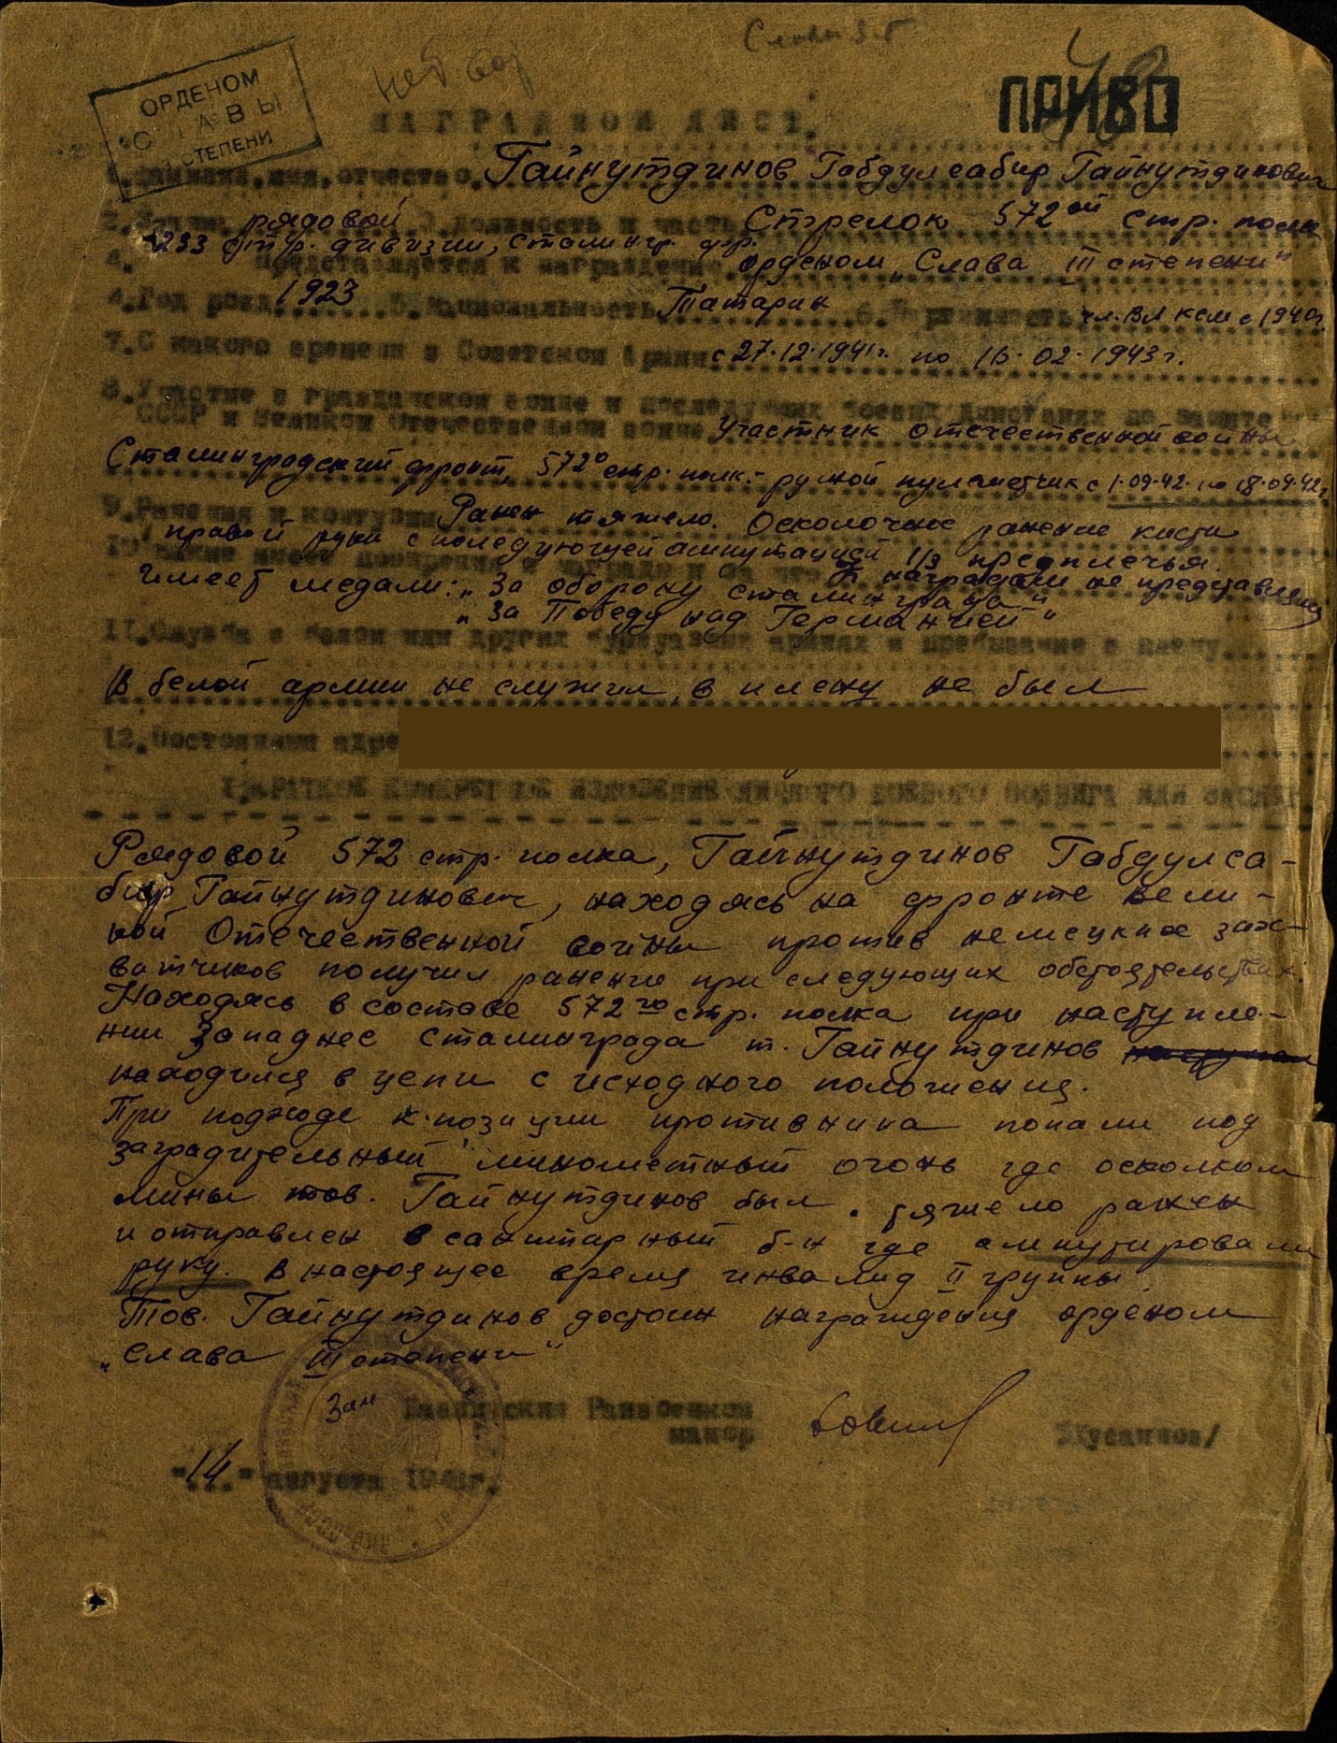 Слава 3 ст
нет
ОРДЕНОМ
СЛАВЫ
СТЕПЕНИ
ПРИВО
НАГРАДНОЙ ЛИСТ.
1.Фамилия,имя,отчество. Гайнутдинов Габдулсабир Гайнутдинович
2.Звание рядовой 3.должность и часть Стрелок 572ой стр. полк
233 стр. дивизии, Сталингр. фр.
Представляется к награждению орденом „Слава III степени"
4.Год рожд. 1923 5.Национальность Татарин 6.Партийность чл. ВЛКСМ с 1940г.
7.С какого времени в Советской Армии с 27.12.1941г. по 16.02.1943г.
8.Участие в гражданской войне и последующих боевых действиях по защите
СССР и Великой Отечественной войне Участник отечественной войны
Сталинградский фронт, 572о стр. полк.- ручной пулеметчик с 1.09.42. по 18.09.42г.
9.Ранения и контузии Ранен тяжело. Осколочное ранение кисти
правой руки с последующей ампутацией 1/3 предплечья.
К наградам не представлялся
Имеет медали: „За оборону Сталинграда"
„За Победу над Германией"
11.Служба в белой или других буржуазных армиях и пребывание в плену
В белой армии не служил, в плену не был
12.Постоянный адре
I.КРАТКОЕ КОНКРЕТНОЕ ИЗЛОЖЕНИЕ ЛИЧНОГО БОЕВОГО ПОДВИГА ИЛИ ЗАСЛУГ
Рядовой 572 стр. полка, Гайнутдинов Габдулса-
бир Гайнутдинович, находясь на фронте Вели-
кой Отечественной войны против немецких зах-
ватчиков получил ранение при следующих обстоятельствах:
Находясь в составе 572го стр. полка при наступле-
нии Западнее Сталинграда т. Гайнутдинов
находился в цепи с исходного положения.
При подходе к позиции противника попали под
заградительный минометный огонь где осколком
мины тов. Гайнутдинов был тяжело ранен
и отправлен в санитарный б-н где ампутировали
руку. В настоящее время инвалид II группы.
Тов. Гайнутдинов достоин награждения орденом
„Слава III степени"
Зам Райвоенком
майор /Хусаинов/
"14" августа 194 г.